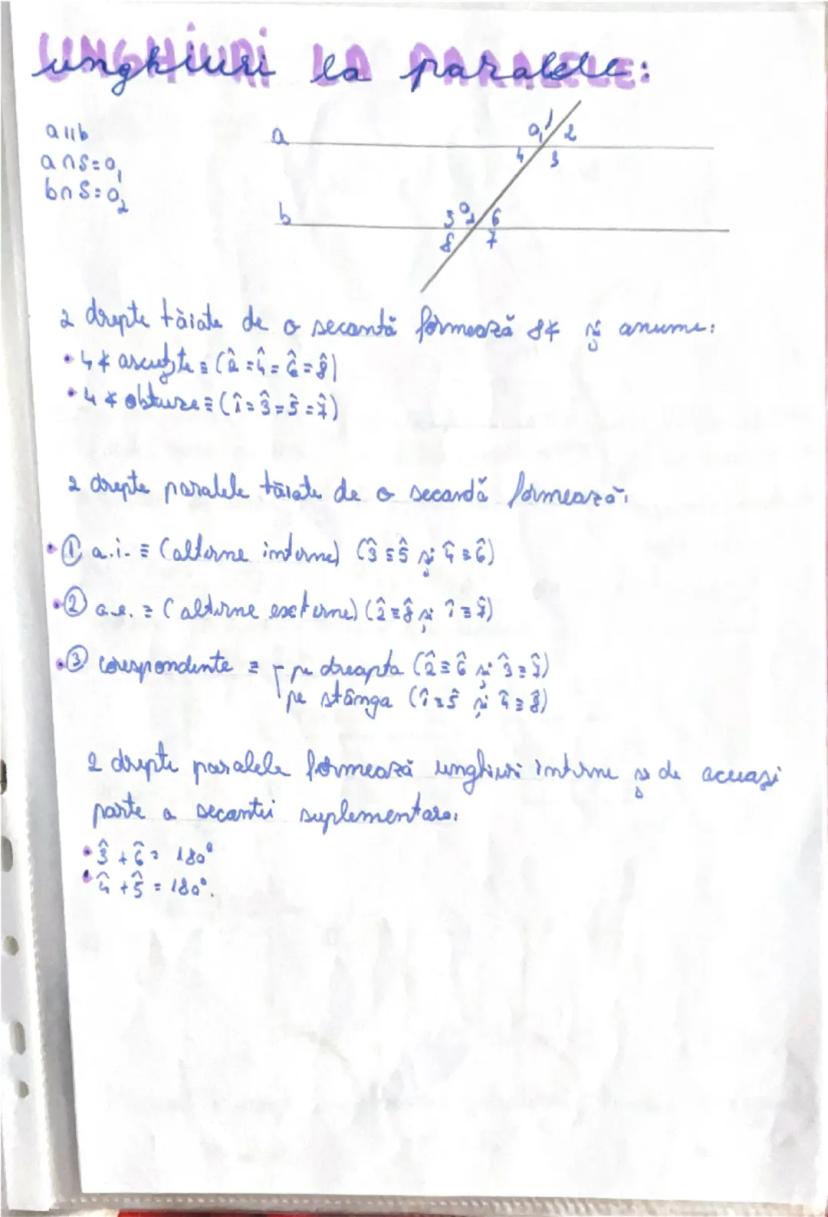 UNGHIURI LA PARALELE:
unghiuri la paralele:
a॥b
a∩S=O₁
b∩S=O₂
a
O₁ 1 2
4 3
b
5 O₂ 6
8 7
2 drepte tăiate de o secantă formează 8∢ și anume:
• 4∢ ascuțite ≡ (2̂=4̂=6̂=8̂)
• 4∢ obtuze ≡ (1̂=3̂=5̂=7̂)
2 drepte paralele tăiate de o secandă formează:
• ① a.i. ≡ (alterne interne) (3̂≡5̂ și 4̂≡6̂)
• ② a.e. ≡ (alterne externe) (2̂≡8̂ și 1̂≡7̂)
• ③ corespondente ≡ pe dreapta (2̂≡6̂ și 3̂≡7̂)
pe stânga (1̂≡5̂ și 4̂≡8̂)
2 drepte paralele formează unghiuri interne și de aceași
parte a secantei suplementare:
• 3̂+6̂= 180°
• 4̂+5̂=180°.